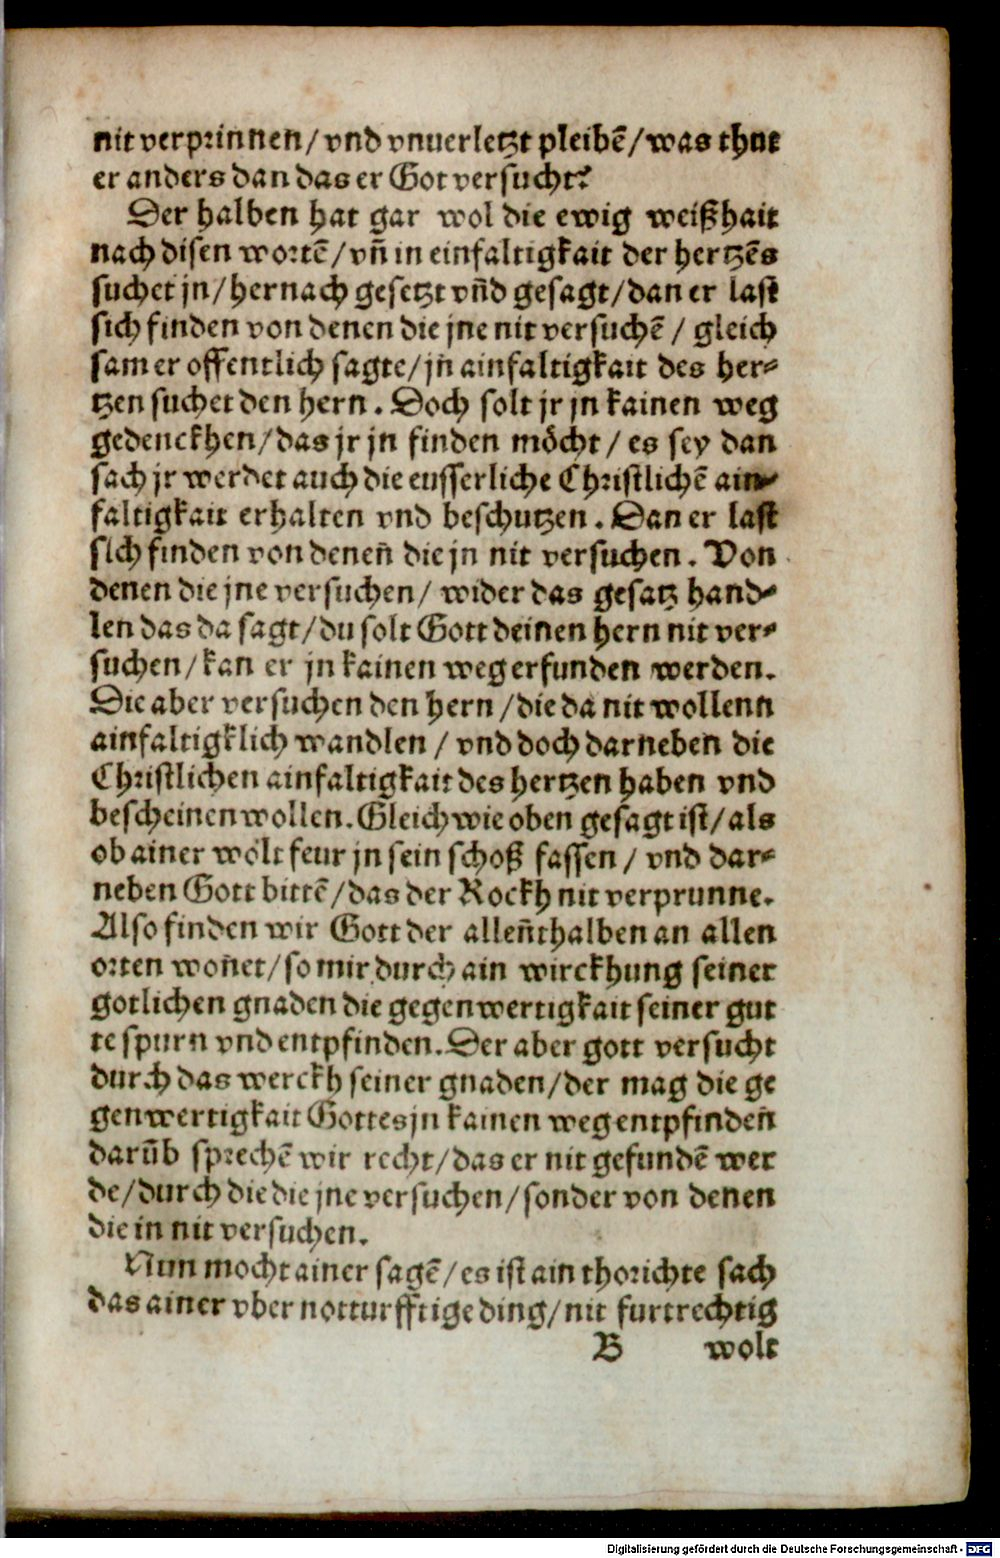 nit verprinnen/vnd vnuerletzt pleibẽ/was thut
er anders dan das er Got versucht?
Der halben hat gar wol die ewig weißhait
nach disen wortẽ/vñ in einfaltigkait der hertzẽs
suchet jn/hernach gesetzt vñd gesagt/dan er last
sich finden von denen die jne nit versuchẽ/ gleich
sam er offentlich sagte/jñ ainfaltigkait des her⸗
tzen suchet den hern. Doch solt jr jn kainen weg
gedenckhen/das jr jn finden möcht/ es sey dan
sach jr werdet auch die eusserliche Christlichẽ ain⸗
faltigkait erhalten vnd beschutzen. Dan er last
sich finden von deneñ die jn nit versuchen. Von
denen die jne versuchen/ wider das gesatz hand⸗
len das da sagt/du solt Gott deinen hern nit ver⸗
suchen/kan er jn kainen weg erfunden werden.
Die aber versuchen den hern/die da nit wollenn
ainfaltigklich wandlen/ vnd doch darneben die
Christlichen ainfaltigkait des hertzen haben vnd
bescheinen wollen. Gleich wie oben gesagt ist/als
ob ainer wölt feur jn sein schoß fassen/ vnd dar⸗
neben Gott bittẽ/das der Rockh nit verprunne.
Also finden wir Gott der alleñthalben an allen
orten woñet/so mir durch ain wirckhung seiner
gotlichen gnaden die gegenwertigkait seiner gut
te spurn vnd entpfinden. Der aber gott versucht
durch das werckh seiner gnaden/der mag die ge
genwertigkait Gottes jn kainen weg entpfindeñ
darũb sprechẽ wir recht/das er nit gefundẽ wer
de/durch die die jne versuchen/sonder von denen
die in nit versuchen.
Nun mocht ainer sagẽ/es ist ain thorichte sach
das ainer vber notturfftige ding/nit furtrechtig
B wolt
Digitalisierung gefördert durch die Deutsche Forschungsgemeinschaft - DFG